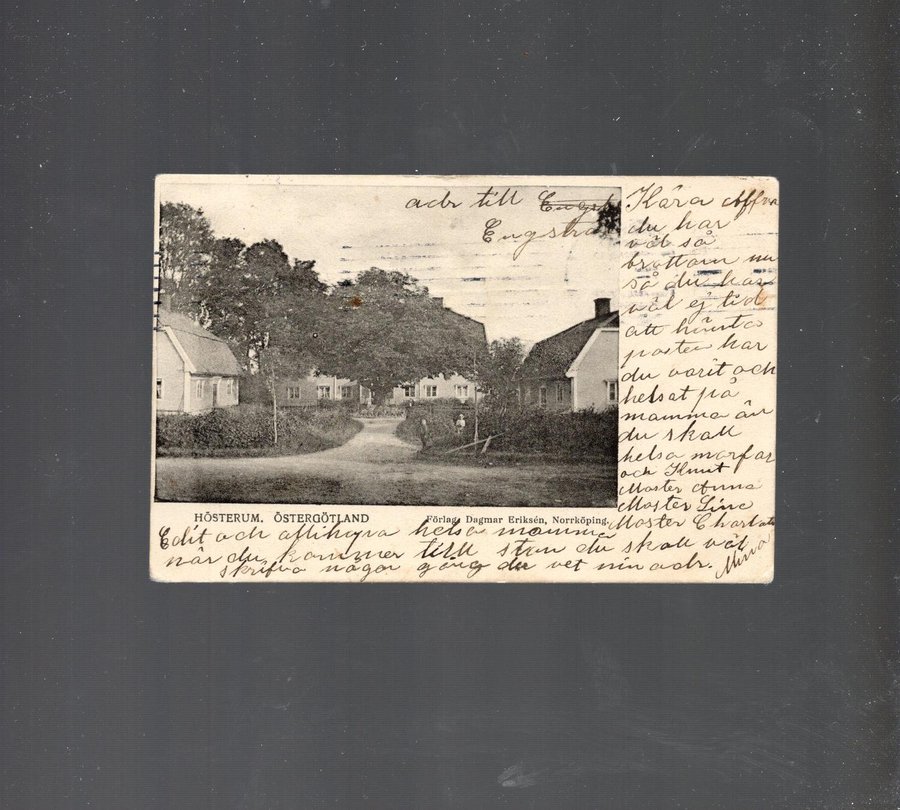 adr till
Kära Affva
du har
väl så
brottom nu
så du har
väl ej tid
att hämta
posten har
du varit och
helsat på
mamma än
du skall
helsa morfar
och Knut
Moster Anna
Moster Lina
Moster Charlotte
HÖSTERUM. ÖSTERGÖTLAND
Förlag: Dagmar Eriksén, Norrköping.
Edit och allihopa helsa mamma
när du kommer till stan du skall väl
skrifva någon gång du vet min adr.